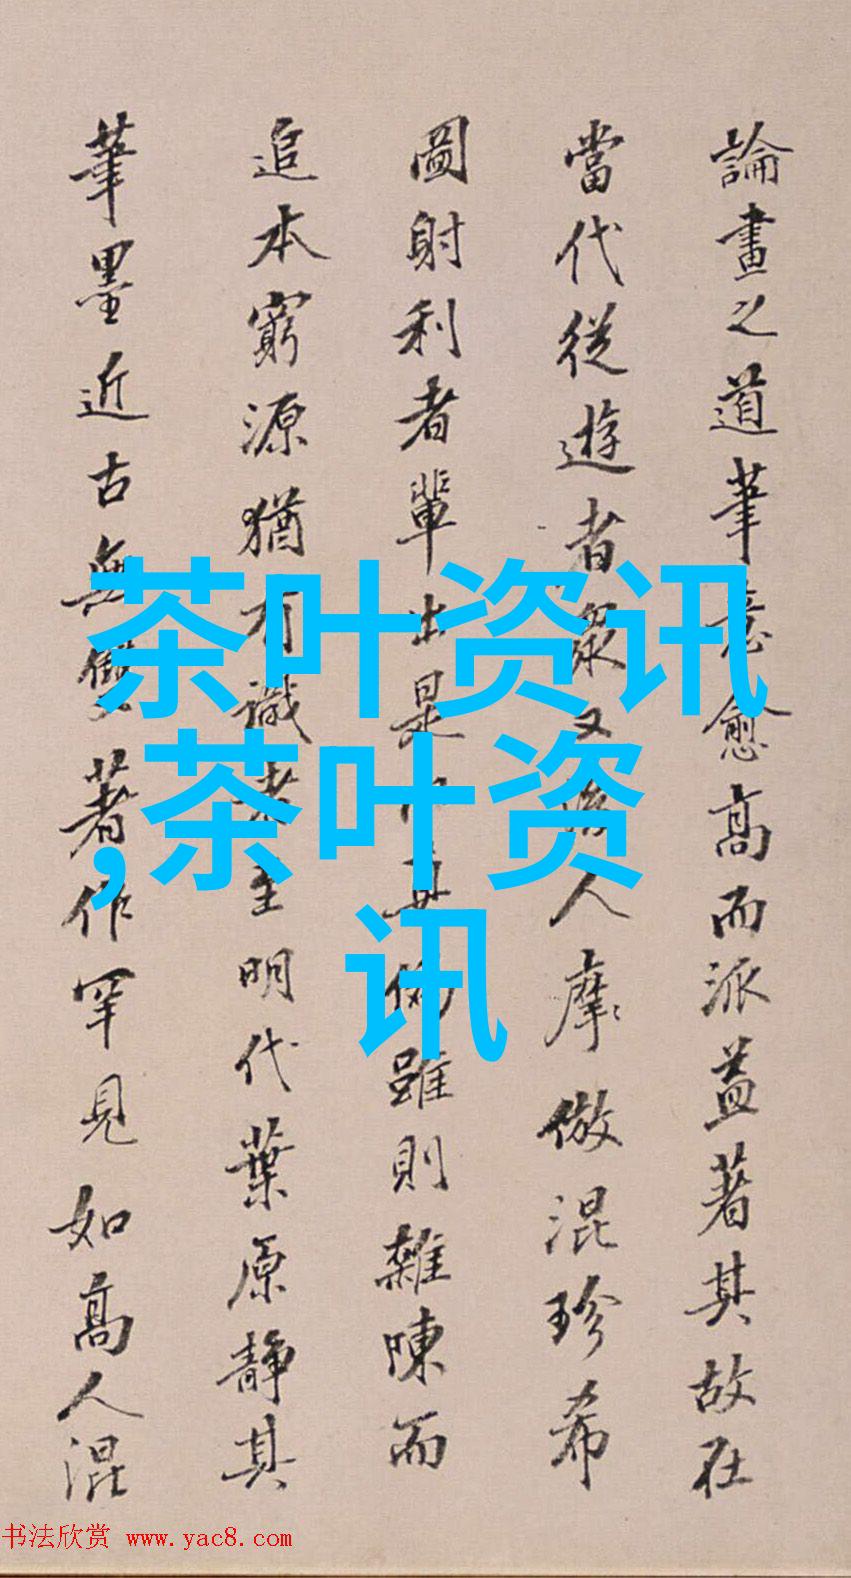 論畫之道筆意愈高而派益著其故在
當代從遊者衆又後人摩倣混珍希
圖射利者輩出是真偽雖則雜陳而
追本窮源猶有識者主明代葉原靜其
筆墨近古無雙著作罕見如高人混
茶叶资讯
,茶叶资
讯
书法欣赏 www.yac8.com